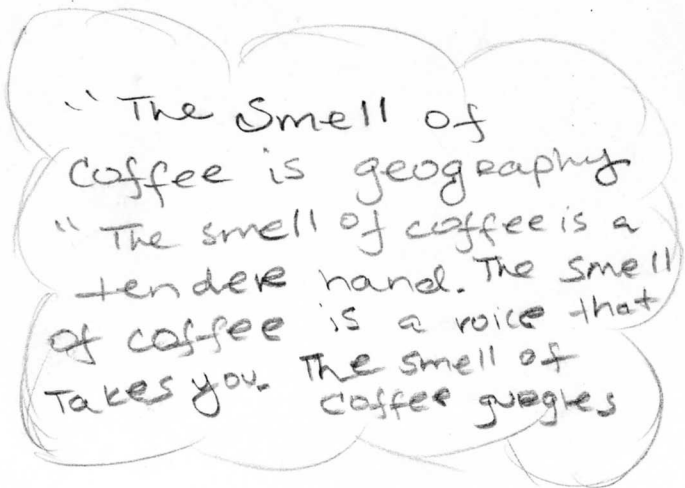 "The Smell of
coffee is geography
"The smell of coffee is a
tender hand. The smell
of coffee is a voice that
Takes you. The smell of
coffee